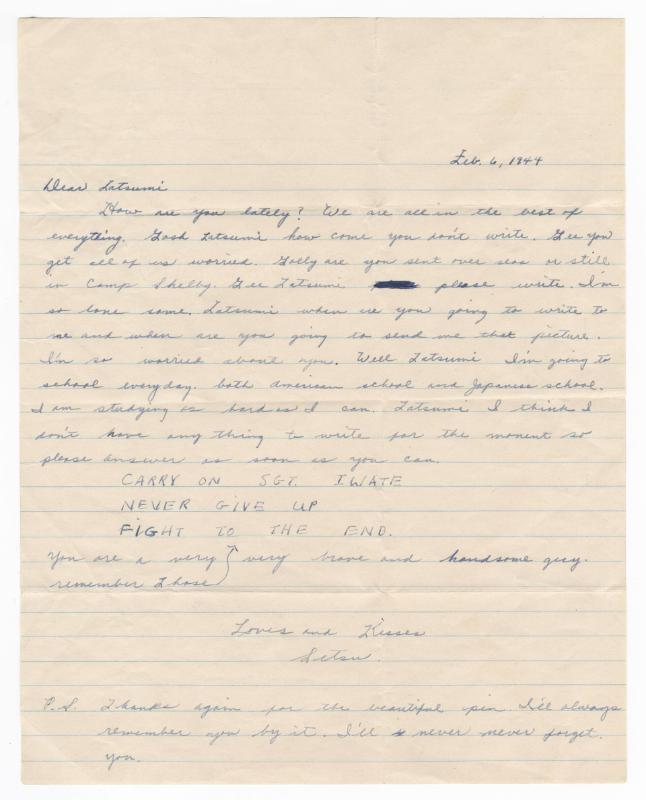 Feb. 6, 1944
Dear Tatsumi
How are you lately? We are all in the best of
everything. Gosh Tatsumi how come you don't write. Gee you
get all of us worried. Golly are you sent over seas or still
in Camp Shelby. Gee Tatsumi please write. I'm
so lone some. Tatsumi when are you going to write to
me and when are you going to send me that picture.
I'm so worried about you. Well Tatsumi I'm going to
school everyday. both American school and Japanese school.
I am studying as hard as I can. Tatsumi I think I
don't have any thing to write for the moment so
please answer as soon as you can.
CARRY ON SGT. IWATE
NEVER GIVE UP
FIGHT TO THE END.
You are a very very brave and handsome guy.
remember those
Loves and Kisses
Setsu.
P.S. Thanks again for the beautiful pin. I'll always
remember you by it. I'll never never forget.
you.